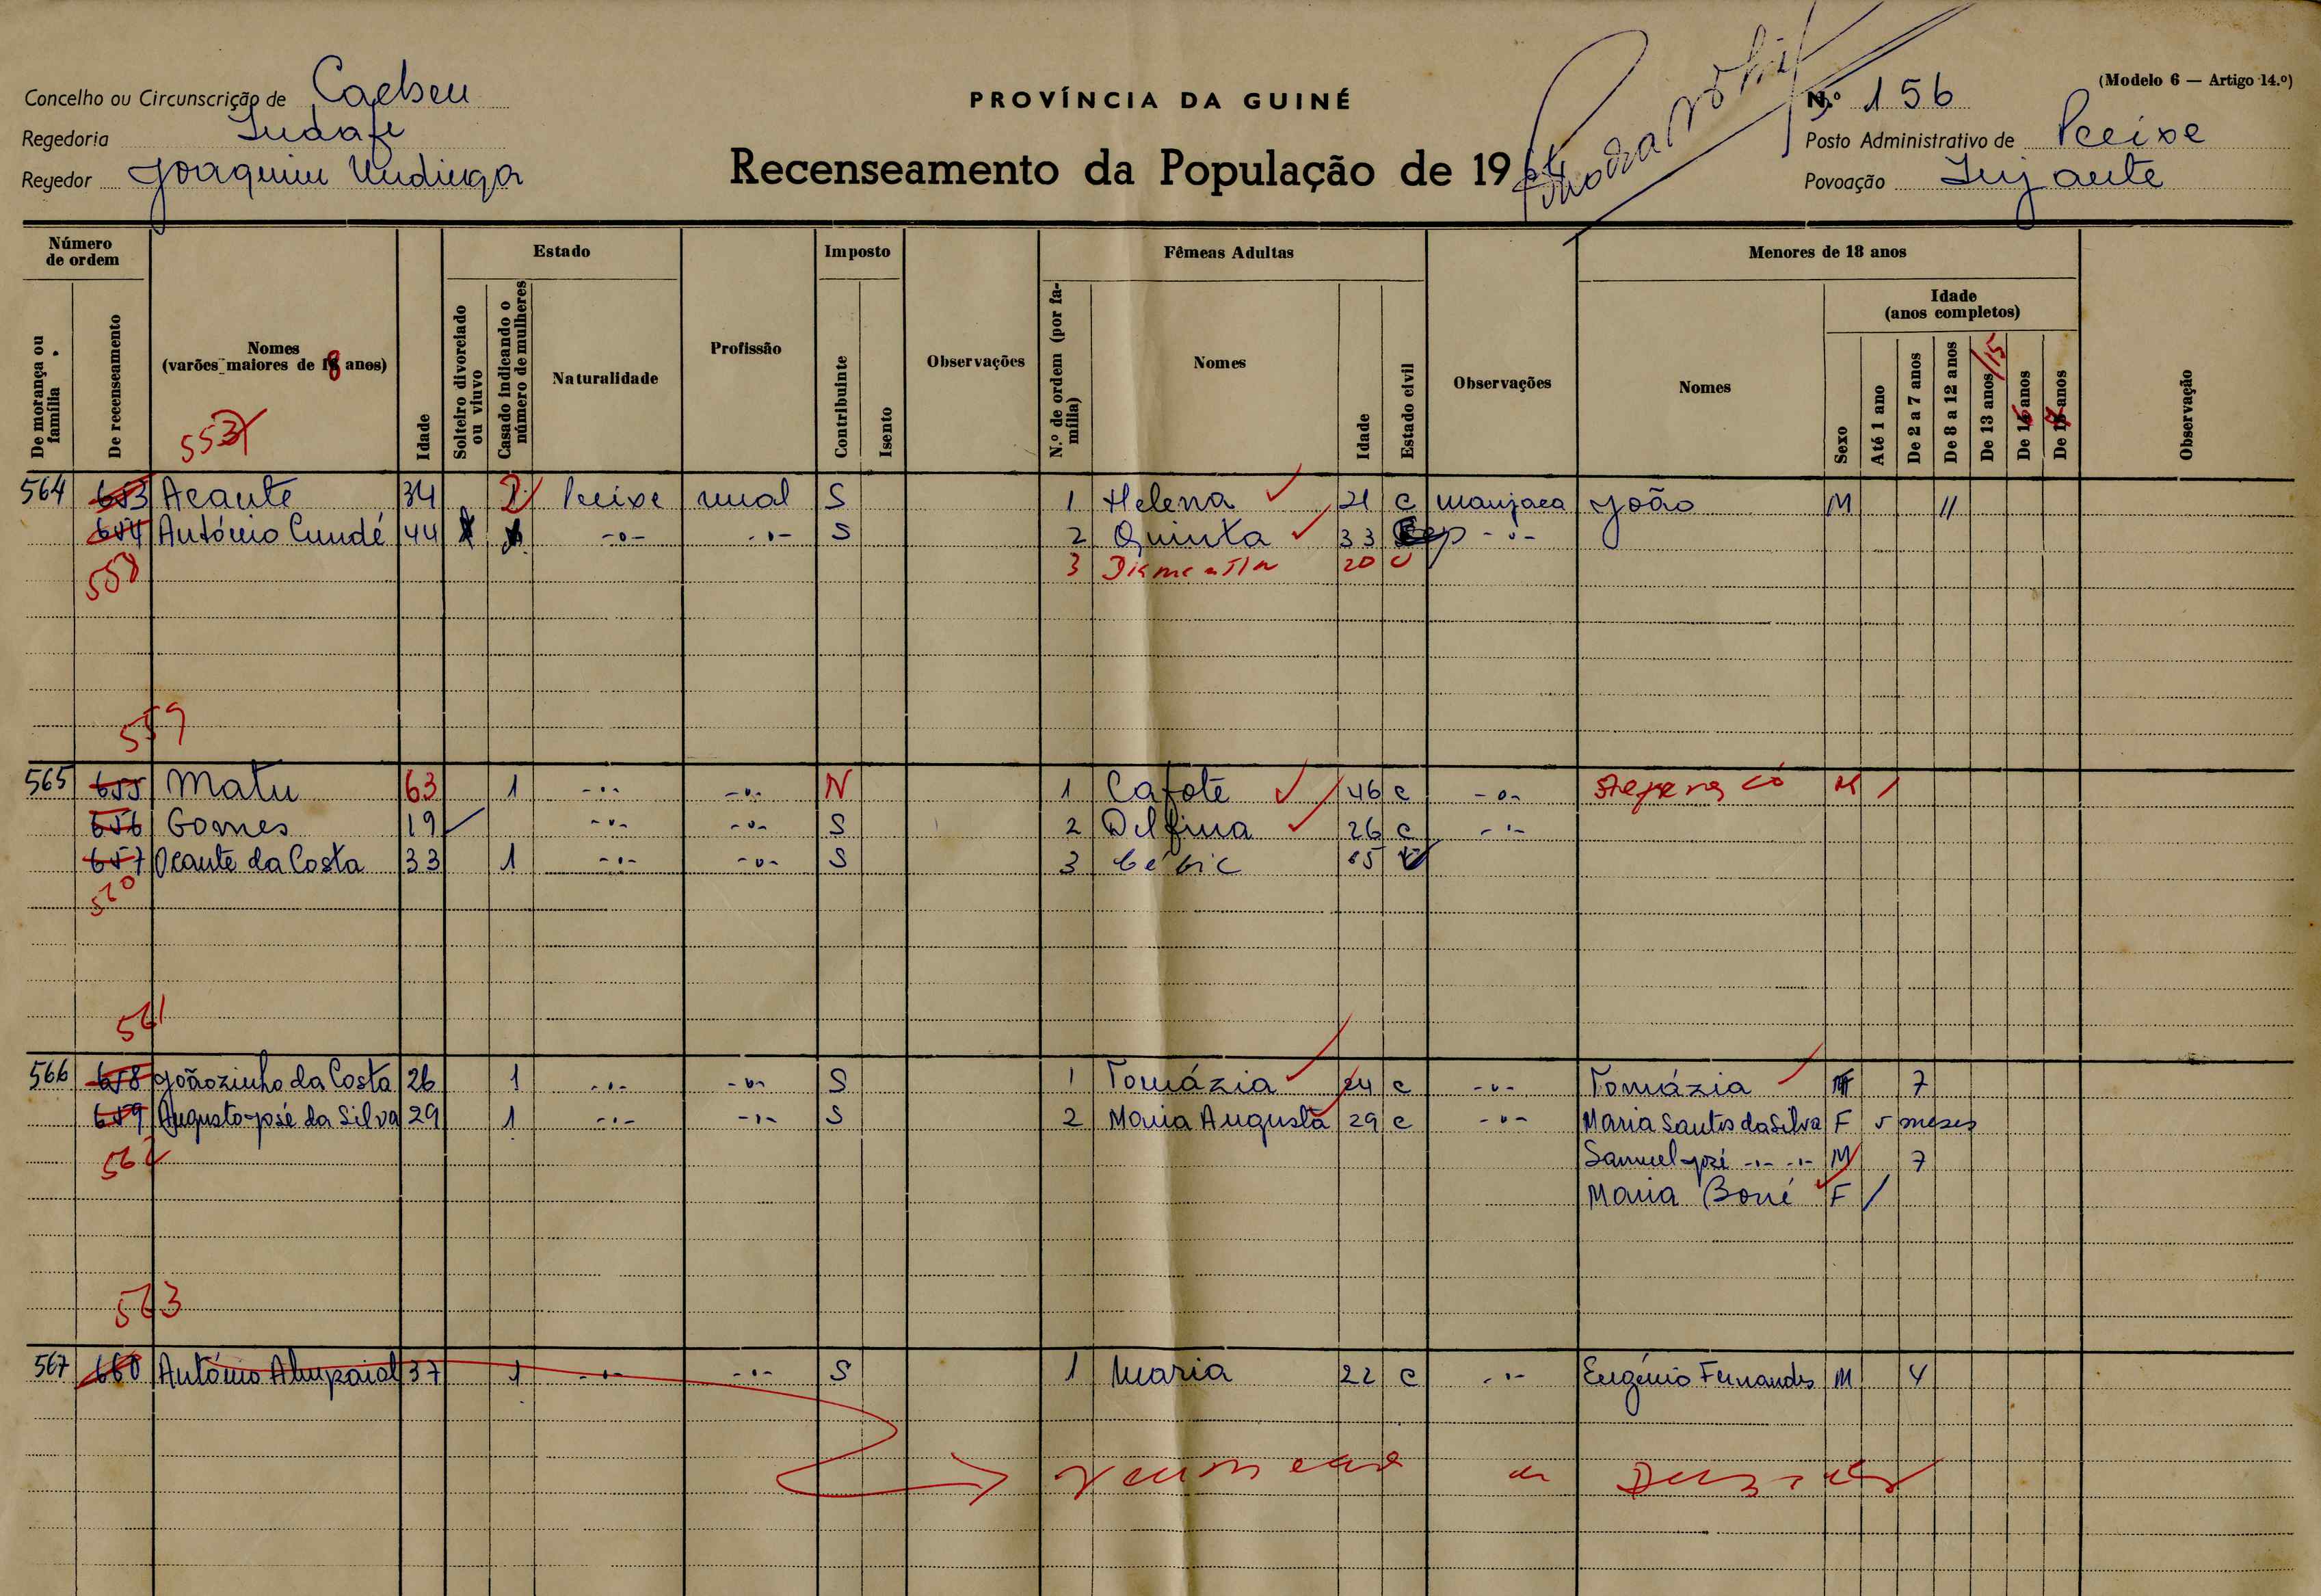 (Modelo 6 — Artigo 14.º)
Concelho ou Circunscrição de
PROVÍNCIA DA GUINÉ
N.º 156
Regedoria
Posto Administrativo de
Regedor Joaquim
Recenseamento da População de 19
Povoação
Número de ordem
De morança ou família
De recenseamento
Nomes (varões maiores de 18 anos)
Idade
Estado
Solteiro divorciado ou viuvo
Casado indicando o número de mulheres
Naturalidade
Profissão
Imposto
Contribuinte
Isento
Observações
Fêmeas Adultas
N.º de ordem (por família)
Nomes
Idade
Estado civil
Observações
Menores de 18 anos
Nomes
Idade (anos completos)
Sexo
Até 1 ano
De 2 a 7 anos
De 8 a 12 anos
De 13 anos /15
De anos
De anos
Observação
564 653 Acante 34 2 rural S 1 Helena 21 c manjaca João M 11
654 António Cundé 44 -o- -o- S 2 Quinta 33 -o-
558 3 20 c
559
565 655 Matu 63 1 -o- -o- N 1 Cafote 46 c -o- M
656 Gomes 19 -o- -o- S 2 Delfina 26 c -o-
657 Ocante da Costa 33 1 -o- -o- S 3 65
560
561
566 658 Joãozinho da Costa 26 1 -o- -o- S 1 Tomázia 24 c -o- Tomázia F 7
659 Augusto José da Silva 29 1 -o- -o- S 2 Maria Augusta 29 c -o- Maria Santos da Silva F 5 meses
562 Samuel José -o- -o- M 7
Maria Boné F
563
567 660 António 37 1 -o- -o- S 1 Maria 22 c -o- Eugénio Fernandes M 4